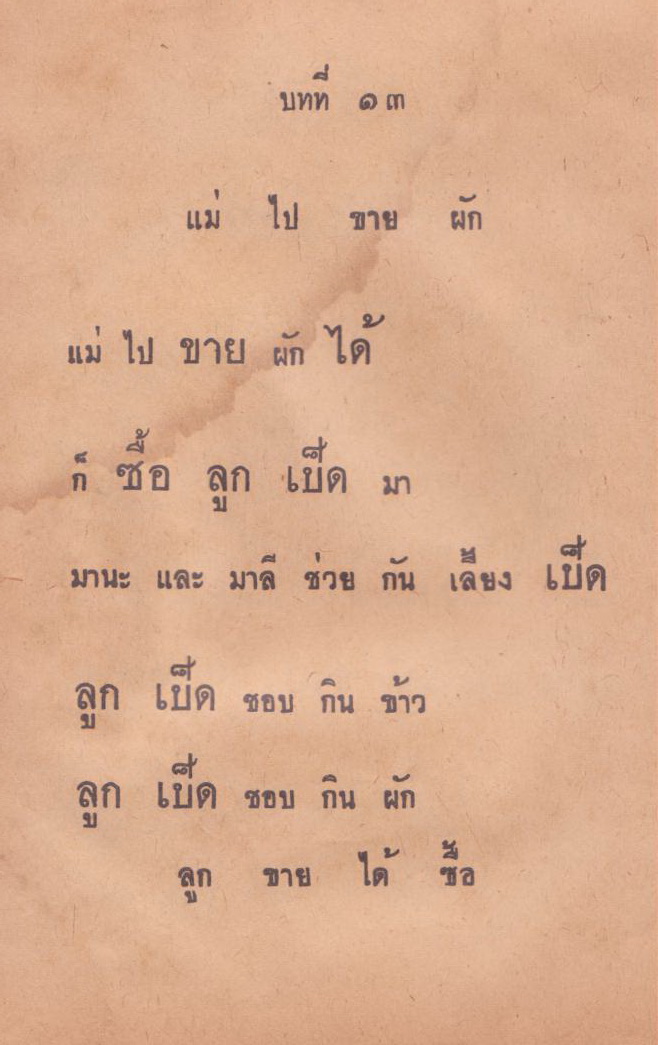 บทที่ ๑๓
แม่ ไป ขาย ผัก
แม่ ไป ขาย ผัก ได้
ก็ ซื้อ ลูก เป็ด มา
มานะ และ มาลี ช่วย กัน เลี้ยง เป็ด
ลูก เป็ด ชอบ กิน ข้าว
ลูก เป็ด ชอบ กิน ผัก
ลูก ขาย ได้ ซื้อ